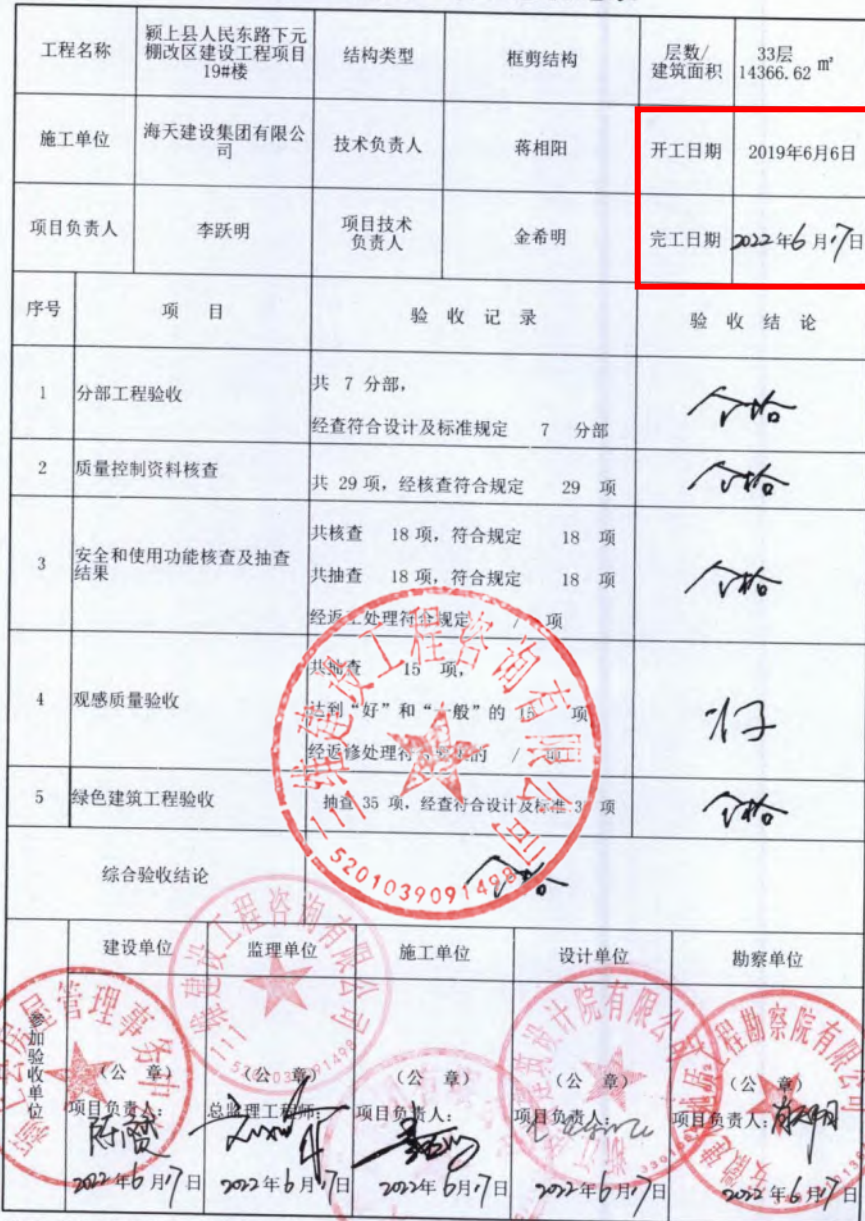 工程名称
颍上县人民东路下元
棚改区建设工程项目
19#楼
结构类型
框剪结构
层数/
建筑面积
33层
14366.62 m²
施工单位
海天建设集团有限公
司
技术负责人
蒋相阳
开工日期
2019年6月6日
项目负责人
李跃明
项目技术
负责人
金希明
完工日期
2022年6月17日
序号
项 目
验 收 记 录
验 收 结 论
1
分部工程验收
共 7 分部,
经查符合设计及标准规定 7 分部
合格
2
质量控制资料核查
共 29 项, 经核查符合规定 29 项
合格
3
安全和使用功能核查及抽查
结果
共核查 18 项, 符合规定 18 项
共抽查 18 项, 符合规定 18 项
经返工处理符合规定 / 项
合格
4
观感质量验收
共抽查 15 项,
达到“好”和“一般”的 15 项
经返修处理符合要求的 / 项
好
5
绿色建筑工程验收
抽查 35 项, 经查符合设计及标准 3 项
合格
综合验收结论
合格
三维建设工程咨询有限公司
5201039091498
参加验收单位
建设单位
(公 章)
项目负责人:
2022年6月17日
监理单位
(公 章)
总监理工程师:
2022年6月17日
施工单位
(公 章)
项目负责人:
2022年6月17日
设计单位
(公 章)
项目负责人:
2022年6月17日
勘察单位
(公 章)
项目负责人:
2022年6月17日
房屋管理事务中
建设工程咨询有限公司
建筑设计院有限公
工程勘察院有限公司